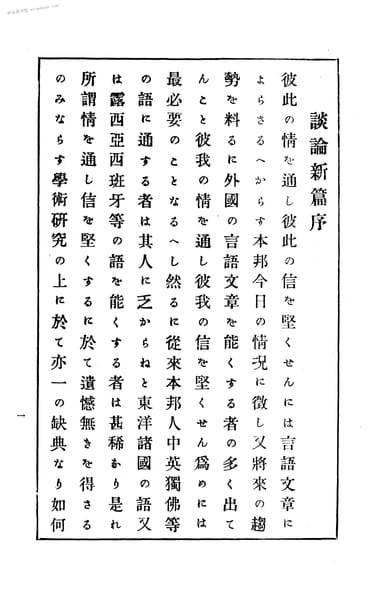 談論新篇序
彼此の情を通し彼此の信を堅くせんには言語文章に
よらさるへからす本邦今日の情況に徴し又將來の趨
勢を料るに外國の言語文章を能くする者の多く出て
んこと彼我の情を通し彼我の信を堅くせん爲めには
最必要のことなるへし然るに從來本邦人中英獨佛等
の語に通する者は其人に乏からねと東洋諸國の語又
は露西亞西班牙等の語を能くする者は甚稀かり是れ
所謂情を通し信を堅くするに於て遺憾無きを得さる
のみならす學術硏究の上に於て亦一の缺典なり如何
一